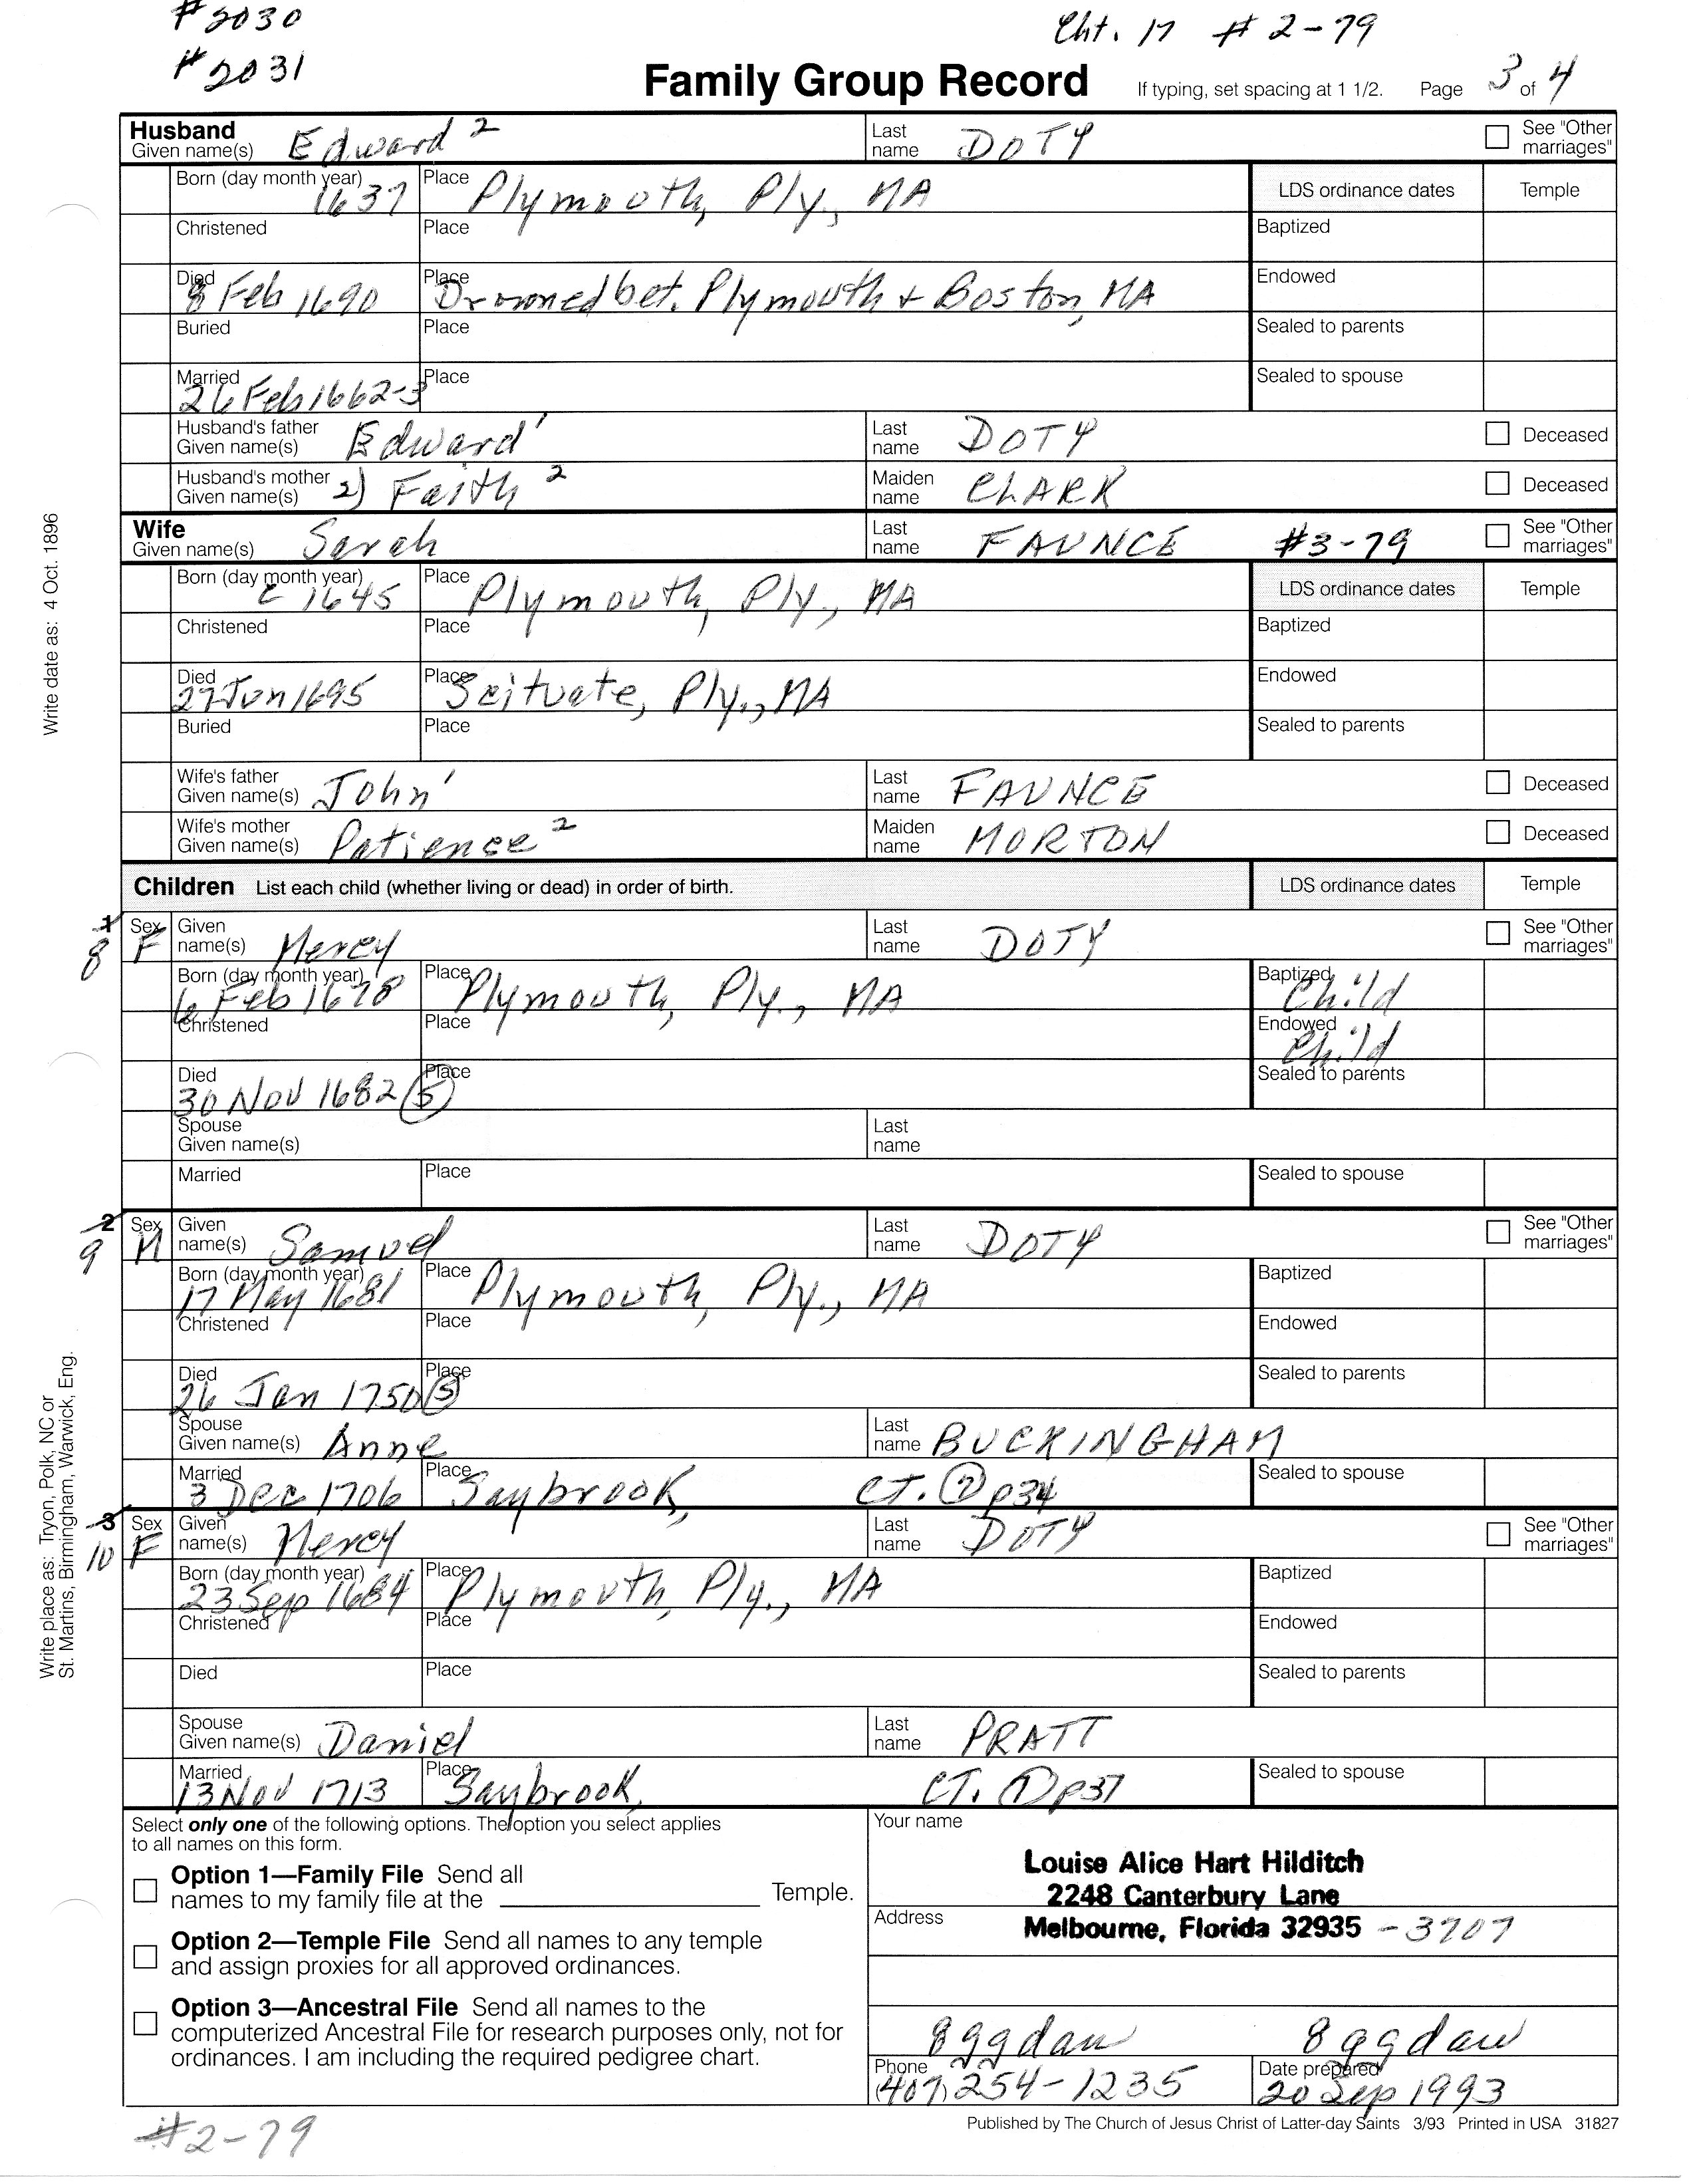 #2030
Cht. 17 #2-79
#2031
Family Group Record If typing, set spacing at 1 1/2. Page 3 of 4
Husband
Given name(s) Edward 2 Last name DOTY See "Other marriages"
Born (day month year) 1637 Place Plymouth, Ply., MA LDS ordinance dates Temple
Christened Place Baptized
Died 8 Feb 1690 Place Drowned bet. Plymouth + Boston, MA Endowed
Buried Place Sealed to parents
Married 26 Feb 1662-3 Place Sealed to spouse
Husband's father Given name(s) Edward 1 Last name DOTY Deceased
Husband's mother Given name(s) 2) Faith 2 Maiden name CLARK Deceased
Wife
Given name(s) Sarah Last name FAUNCE #3-79 See "Other marriages"
Born (day month year) c 1645 Place Plymouth, Ply., MA LDS ordinance dates Temple
Christened Place Baptized
Died 27 Jun 1695 Place Scituate, Ply., MA Endowed
Buried Place Sealed to parents
Wife's father Given name(s) John 1 Last name FAUNCE Deceased
Wife's mother Given name(s) Patience 2 Maiden name MORTON Deceased
Children List each child (whether living or dead) in order of birth. LDS ordinance dates Temple
1 8 Sex F Given name(s) Mercy Last name DOTY See "Other marriages"
Born (day month year) 6 Feb 1678 Place Plymouth, Ply., MA Baptized Child
Christened Place Endowed Child
Died 30 Nov 1682 (5) Place Sealed to parents
Spouse Given name(s) Last name
Married Place Sealed to spouse
2 9 Sex M Given name(s) Samuel Last name DOTY See "Other marriages"
Born (day month year) 17 May 1681 Place Plymouth, Ply., MA Baptized
Christened Place Endowed
Died 26 Jan 1750 (5) Place Sealed to parents
Spouse Given name(s) Anne Last name BUCKINGHAM
Married 3 Dec 1706 Place Saybrook, CT. (7) p34 Sealed to spouse
3 10 Sex F Given name(s) Mercy Last name DOTY See "Other marriages"
Born (day month year) 23 Sep 1684 Place Plymouth, Ply., MA Baptized
Christened Place Endowed
Died Place Sealed to parents
Spouse Given name(s) Daniel Last name PRATT
Married 13 Nov 1713 Place Saybrook, CT. (7) p37 Sealed to spouse
Write date as: 4 Oct. 1896
Write place as: Tryon, Polk, NC or
St. Martins, Birmingham, Warwick, Eng.
Select only one of the following options. The option you select applies
to all names on this form.
Option 1—Family File Send all
names to my family file at the Temple.
Option 2—Temple File Send all names to any temple
and assign proxies for all approved ordinances.
Option 3—Ancestral File Send all names to the
computerized Ancestral File for research purposes only, not for
ordinances. I am including the required pedigree chart.
Your name
Louise Alice Hart Hilditch
2248 Canterbury Lane
Address Melbourne, Florida 32935 -3707
8ggdau 8ggdau
Phone (407) 254-1235 Date prepared 20 Sep 1993
Published by The Church of Jesus Christ of Latter-day Saints 3/93 Printed in USA 31827
#2-79